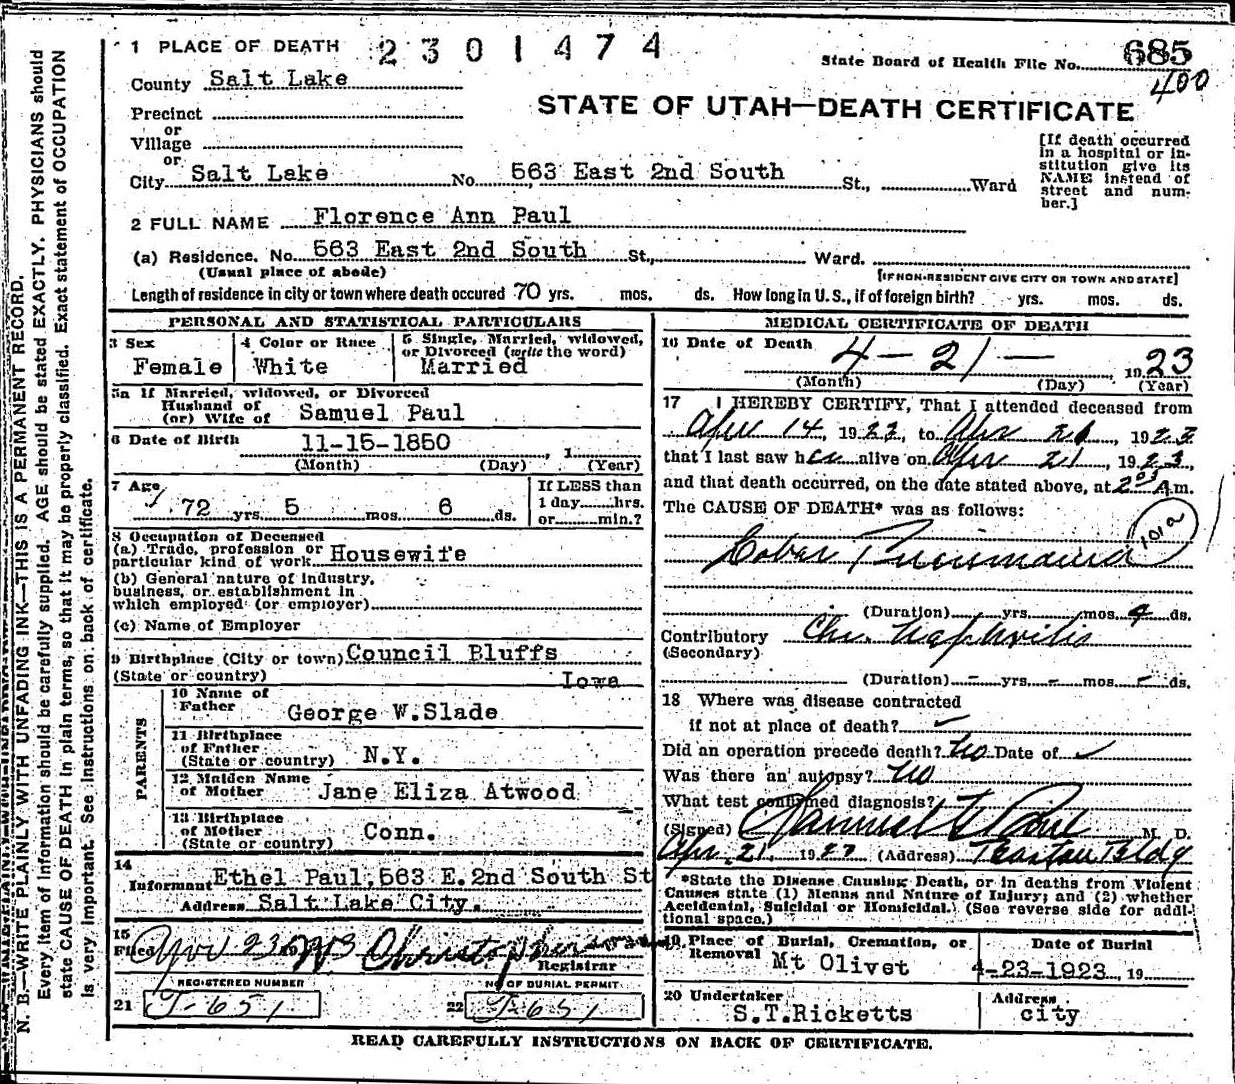 1 PLACE OF DEATH 2301474
State Board of Health File No. 685
400
County Salt Lake
STATE OF UTAH—DEATH CERTIFICATE
Precinct
or
Village
or
City Salt Lake No. 563 East 2nd South St., Ward
[If death occurred in a hospital or institution give its NAME instead of street and number.]
2 FULL NAME Florence Ann Paul
(a) Residence. No. 563 East 2nd South St., Ward.
(Usual place of abode) [IF NON-RESIDENT GIVE CITY OR TOWN AND STATE]
Length of residence in city or town where death occured 70 yrs. mos. ds. How long in U. S., if of foreign birth? yrs. mos. ds.
PERSONAL AND STATISTICAL PARTICULARS
3 Sex Female
4 Color or Race White
5 Single, Married, widowed, or Divorced (write the word) Married
5a If Married, widowed, or Divorced
Husband of
(or) Wife of Samuel Paul
6 Date of Birth 11-15-1850, 1
(Month) (Day) (Year)
7 Age 72 yrs. 5 mos. 6 ds.
If LESS than 1 day hrs. or min.?
8 Occupation of Deceased
(a) Trade, profession or particular kind of work Housewife
(b) General nature of industry, business, or establishment in which employed (or employer)
(c) Name of Employer
9 Birthplace (City or town) Council Bluffs
(State or country) Iowa
PARENTS
10 Name of Father George W.Slade
11 Birthplace of Father (State or country) N.Y.
12 Maiden Name of Mother Jane Eliza Atwood
13 Birthplace of Mother (State or country) Conn.
14
Informant Ethel Paul, 563 E. 2nd South St
Address Salt Lake City.
15
Filed Christopherson
Registrar
REGISTERED NUMBER
21 J-651
NO OF BURIAL PERMIT
22 J-651
MEDICAL CERTIFICATE OF DEATH
16 Date of Death 4-21-1923
(Month) (Day) (Year)
17 I HEREBY CERTIFY, That I attended deceased from
Apr 14, 1923, to Apr 21, 1923
that I last saw her alive on Apr 21, 1923,
and that death occurred, on the date stated above, at A.m.
The CAUSE OF DEATH* was as follows:
101a
Lobar Pneumonia
(Duration) yrs. mos. ds.
Contributory Chr. Nephritis
(Secondary)
(Duration) - yrs. - mos. - ds.
18 Where was disease contracted
if not at place of death?
Did an operation precede death? No Date of
Was there an autopsy? No
What test confirmed diagnosis?
(Signed) Samuel G Paul M. D.
Apr. 21, 1923 (Address) Bldg
*State the Disease Causing Death, or in deaths from Violent Causes state (1) Means and Nature of Injury; and (2) whether Accidental, Suicidal or Homicidal. (See reverse side for additional space.)
19 Place of Burial, Cremation, or Removal Mt Olivet
Date of Burial 4-23-1923, 19
20 Undertaker S.T.Ricketts
Address city
READ CAREFULLY INSTRUCTIONS ON BACK OF CERTIFICATE.
N. B.—WRITE PLAINLY, WITH UNFADING INK—THIS IS A PERMANENT RECORD.
Every item of information should be carefully supplied. AGE should be stated EXACTLY. PHYSICIANS should
state CAUSE OF DEATH in plain terms, so that it may be properly classified. Exact statement of OCCUPATION
is very important. See instructions on back of certificate.